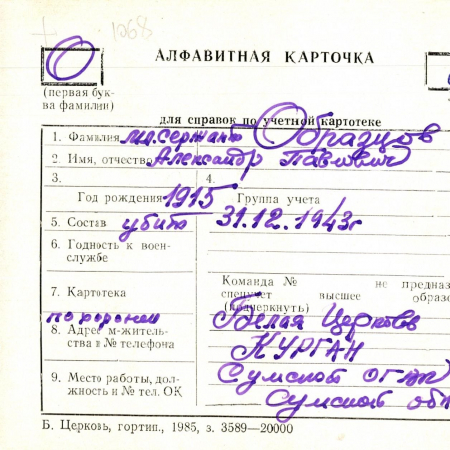 1968
О
АЛФАВИТНАЯ КАРТОЧКА
(первая бук-
ва фамилии)
для справок по учетной картотеке
1. Фамилия мл. сержант Образцов
2. Имя, отчество Александр Павлович
3. 4.
Год рождения 1915 Группа учета
5. Состав убит 31.12.1943г
6. Годность к воен-
службе
Команда № не предназ
7. Картотека спецучет высшее образо
(подчеркнуть)
похоронен Белая Церковь
8. Адрес м-житель-
ства и № телефона
КУРГАН
9. Место работы, дол-
жность и № тел. ОК
Сумской
Сумской обл
Б. Церковь, гортип., 1985, з. 3589—20000